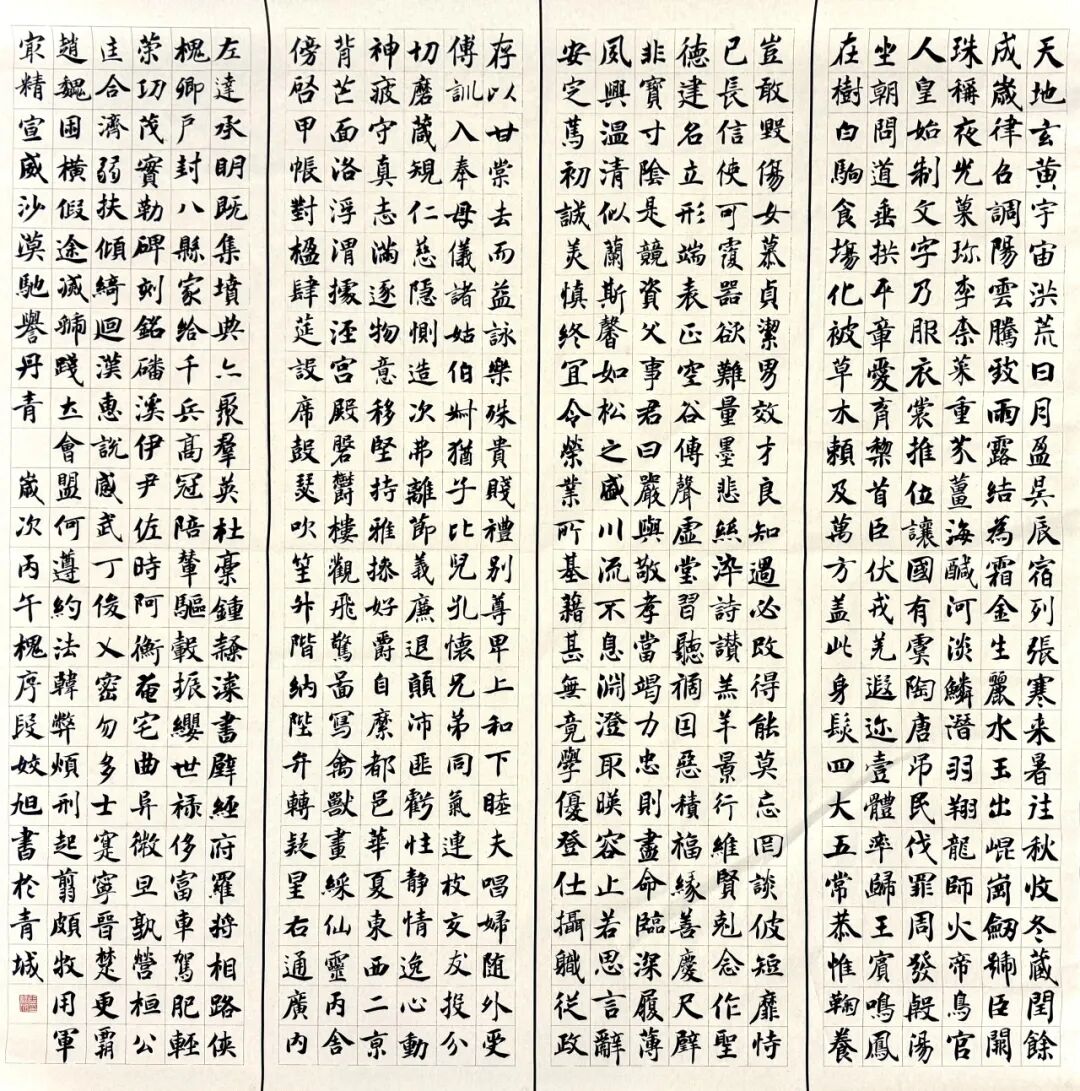 天地玄黃宇宙洪荒日月盈昃辰宿列張寒来暑往秋收冬蔵閏餘
成歲律呂調陽雲騰致雨露結為霜金生麗水玉出崐崗劒號巨闕
珠稱夜光菓珎李柰菜重芥薑海醎河淡鱗潛羽翔龍師火帝鳥官
人皇始制文字乃服衣裳推位讓國有虞陶唐吊民伐罪周發殷湯
坐朝問道垂拱平章愛育黎首臣伏戎羌遐迩壹體率歸王賓鳴鳳
在樹白駒食場化被草木賴及萬方盖此身髮四大五常恭惟鞠養
豈敢毀傷女慕貞潔男效才良知過必改得能莫忘罔談彼短靡恃
已長信使可覆器欲難量墨悲絲染詩讃羔羊景行維賢剋念作聖
德建名立形端表正空谷傳聲虛堂習聽禍因惡積福緣善慶尺璧
非寶寸陰是競資父事君曰嚴與敬孝當竭力忠則盡命臨深履薄
夙興溫清似蘭斯馨如松之盛川流不息淵澄取暎容止若思言辭
安定篤初誠美慎終宜令榮業所基藉甚無竟學優登仕攝職從政
存以甘棠去而益詠樂殊貴賤禮別尊卑上和下睦夫唱婦随外受
傅訓入奉母儀諸姑伯叔猶子比兒孔懷兄弟同氣連枝交友投分
切磨箴規仁慈隱惻造次弗離節義廉退顛沛匪虧性静情逸心動
神疲守真志滿逐物意移堅持雅操好爵自縻都邑華夏東西二京
背芒面洛浮渭據涇宮殿磐鬱樓觀飛驚啚寫禽獸畫綵仙靈丙舍
傍啓甲帳對楹肆莚設席鼓瑟吹笙升階納陛弁轉疑星右通廣内
左達承明既集墳典亦聚羣英杜稾鍾隸漆書壁經府羅將相路俠
槐卿戶封八縣家給千兵高冠陪輦驅轂振纓世禄侈富車駕肥輕
策功茂實勒碑刻銘磻溪伊尹佐時阿衡奄宅曲阜微旦孰營桓公
匡合濟弱扶傾綺迴漢惠說感武丁俊乂密勿多士寔寧晉楚更霸
趙魏困橫假途滅虢踐土會盟何遵約法韓弊煩刑起翦頗牧用軍
最精宣威沙漠馳譽丹青 歲次丙午槐序段姣旭書於青城